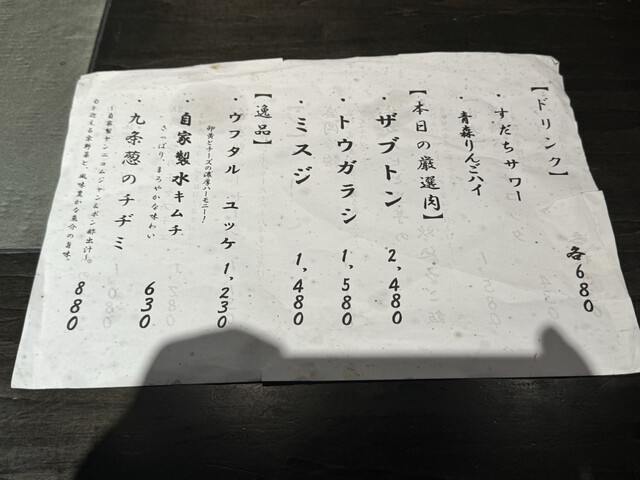 【ドリンク】
・すだちサワー
青森りんごハイ
各680
【本日の厳選肉】
・ザブトン 2,480
・トウガラシ 1,580
・ミスジ 1,480
【逸品】
・ウフタル ユッケ 1,230
卵黄とチーズの濃厚ハーモニー!
・自家製水キムチ 630
さっぱり、まろやかな味わい
・九条葱のチヂミ 880
～自家製ヤンニョムジャン&ポン酢出汁～。
風味豊かな
旨味。